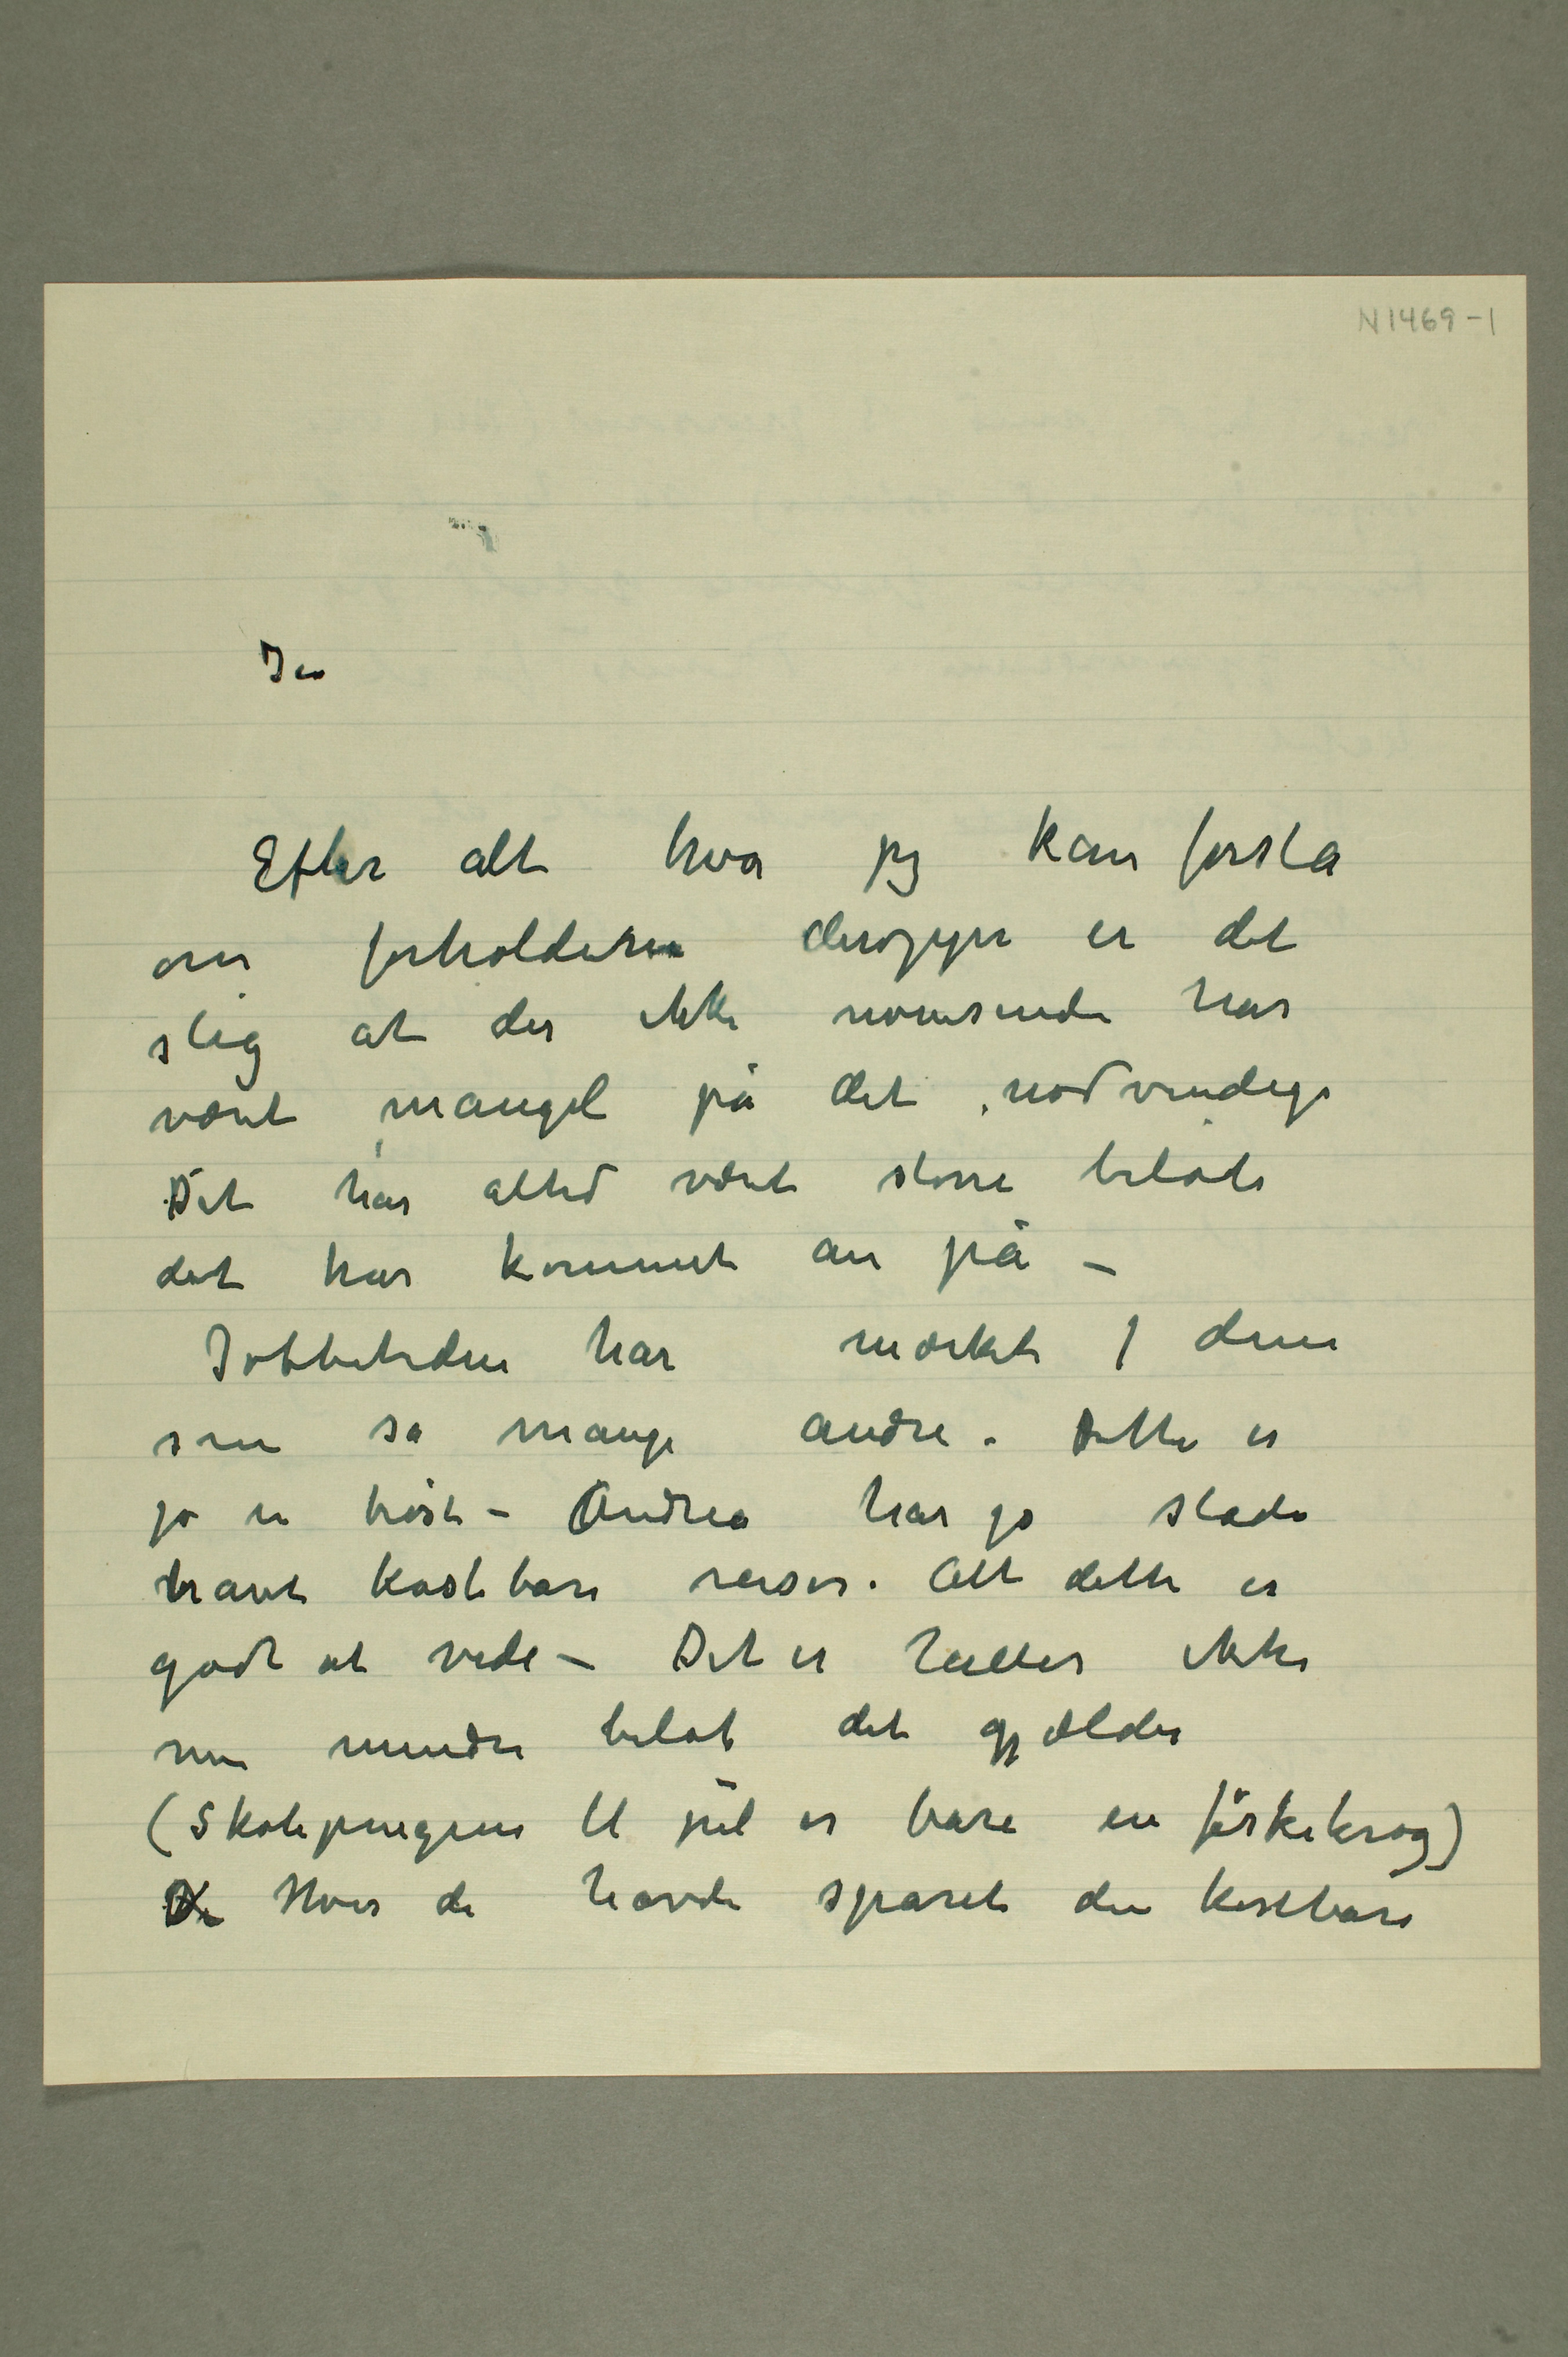 N1469-1
Efter alt hva jeg kan forstå
om forholdene deroppe er det
slig at der ikke noensinde har
været mangel på det nødvendige
Det har altid været større beløb
det har kommet an på –
Jobbetiden har mærket dem
som så mange andre. Dette er
jo en trøst – Andrea har jo stadi
havt kostbare reiser. Alt dette er
godt at vide – Det er heller ikke
nu mindre beløb det gjælder
(Skolepengene til jul er bare en fiskekrog)
Hvis de havde sparet den kostbare